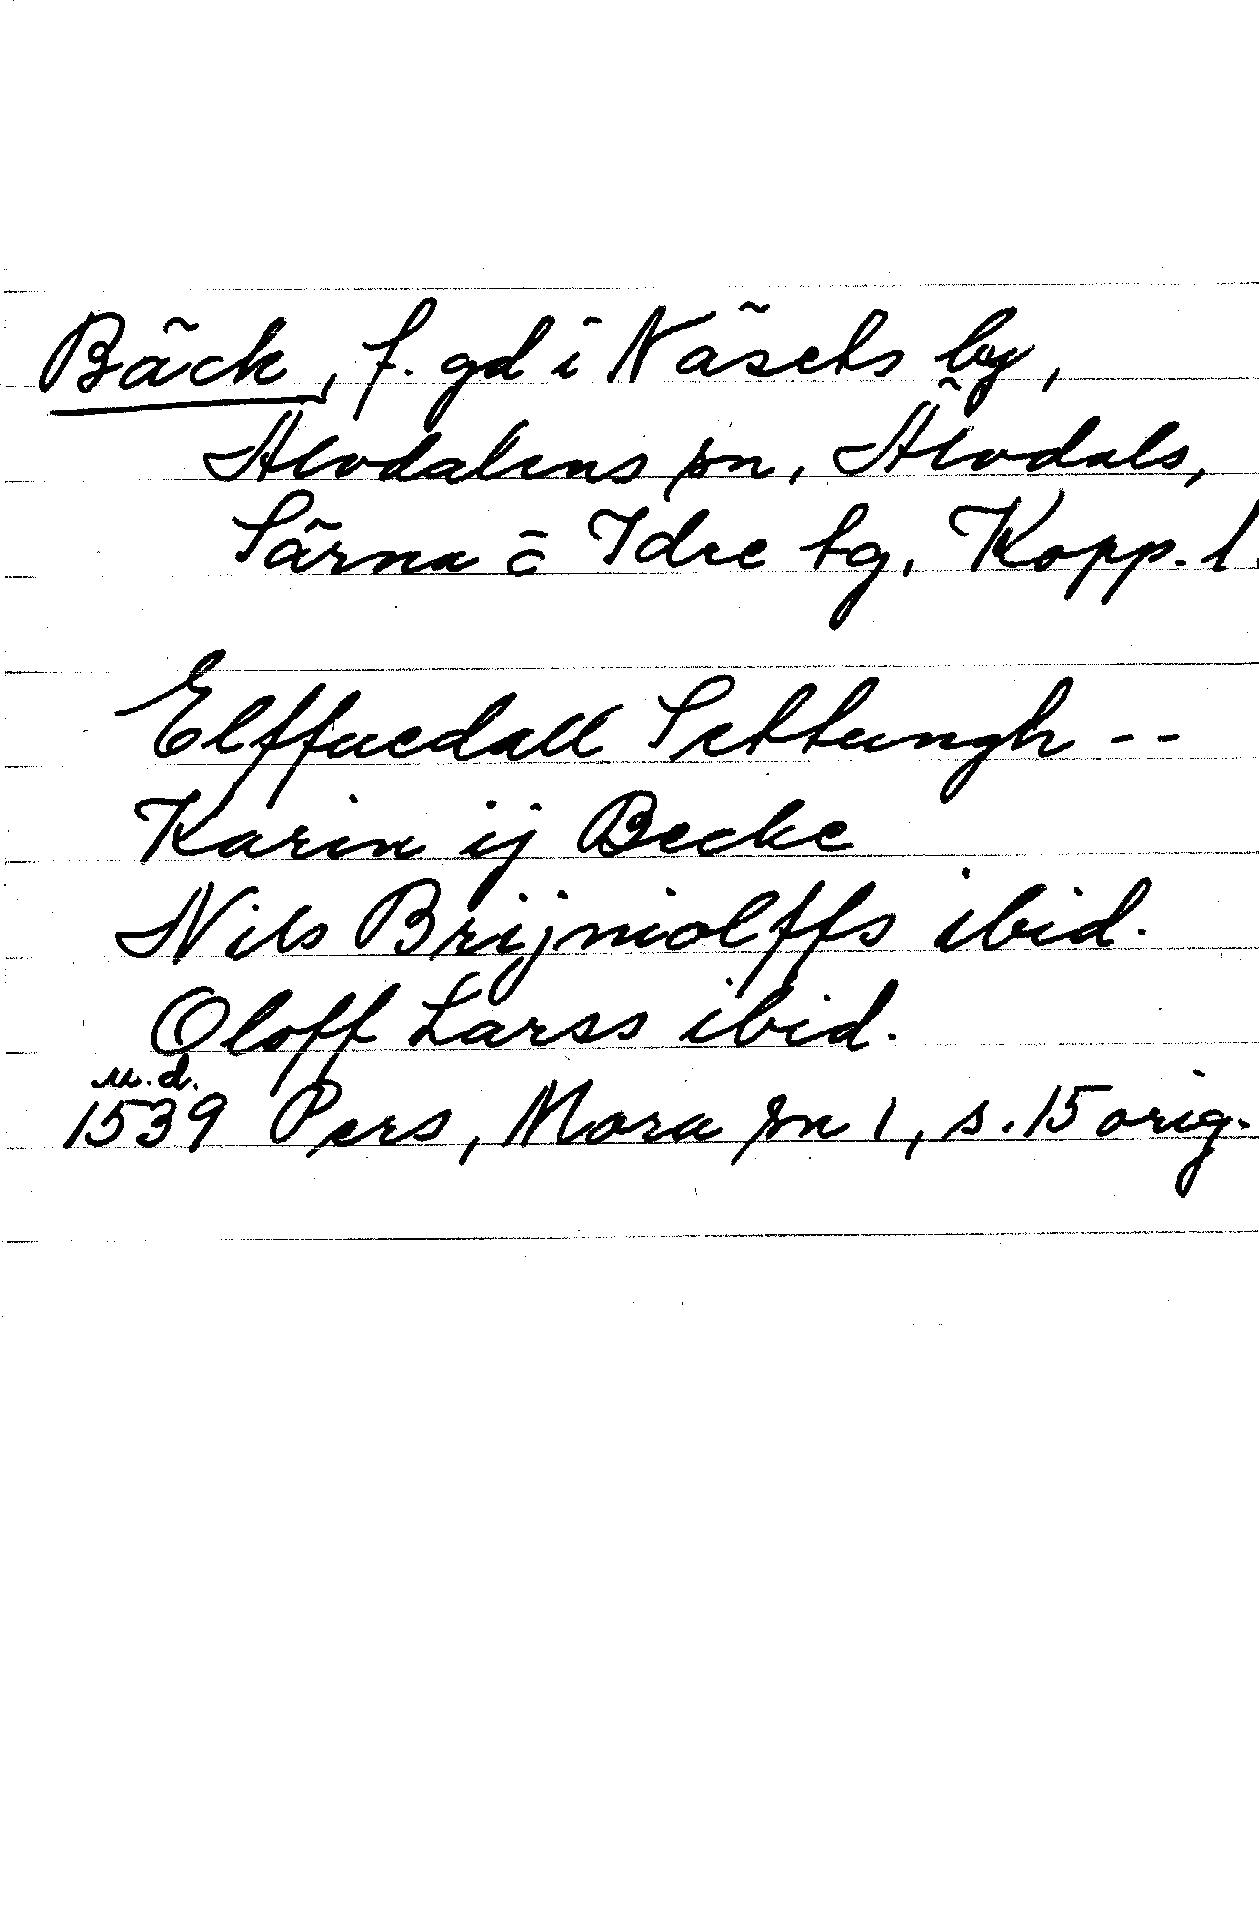 Bäck, f. gd i Näsets by,
Älvdalens sn, Älvdals,
Särna o Idre tg, Kopp. l.
Elffuedall Settungh --
Karin ij Becke
Nils Brijniolffs ibid.
Oloff Larss ibid.
u.d.
1539 Pers, Mora sn 1, s. 15 orig.